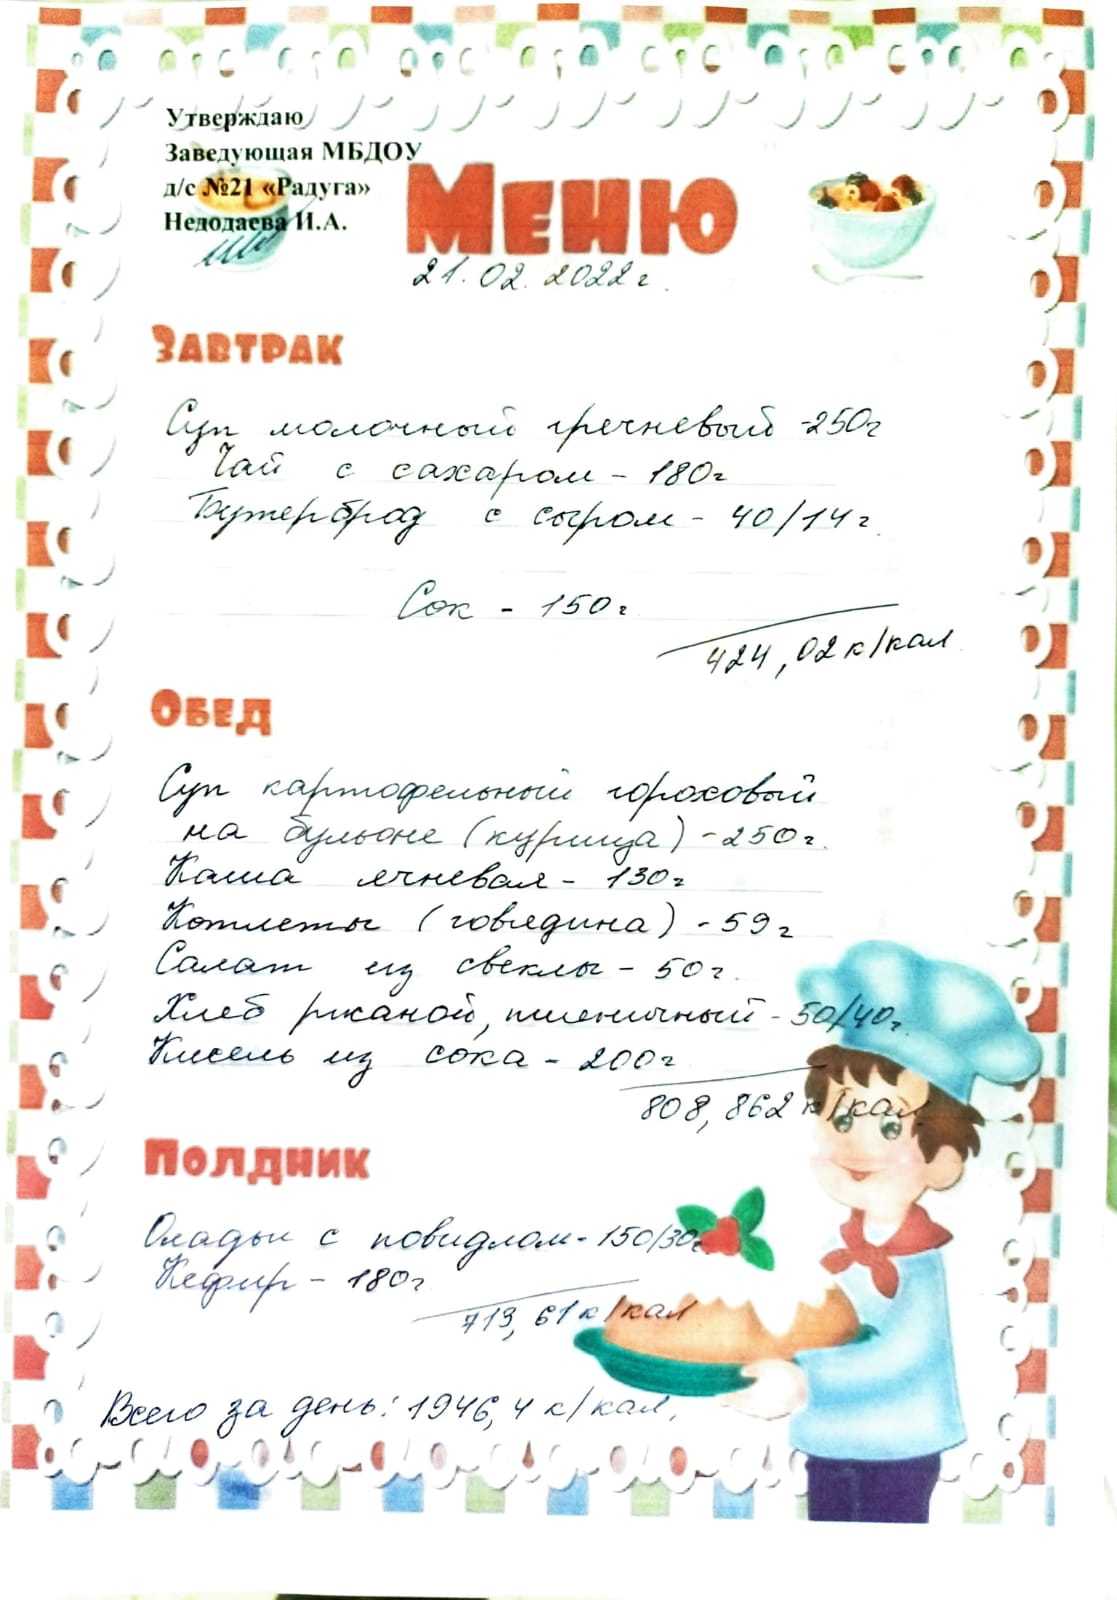 Утверждаю
Заведующая МБДОУ
д/с №21 «Радуга»
Недодаева И.А.
Меню
21.02.2022г.
Завтрак
Суп молочный гречневый -250г
Чай с сахаром - 180г
Бутерброд с сыром - 40/14г.
Сок - 150г.
424,02 к/кал.
Обед
Суп картофельный гороховый
на бульоне (курица) - 250г.
Каша ячневая - 130г
Котлеты (говядина) - 59г
Салат из свеклы - 50г.
Хлеб ржаной, пшеничный - 50/40г.
Кисель из сока - 200г
808,862 к/кал
Полдник
Оладьи с повидлом - 150/30г.
Кефир - 180г
713,61 к/кал
Всего за день: 1946,4 к/кал.